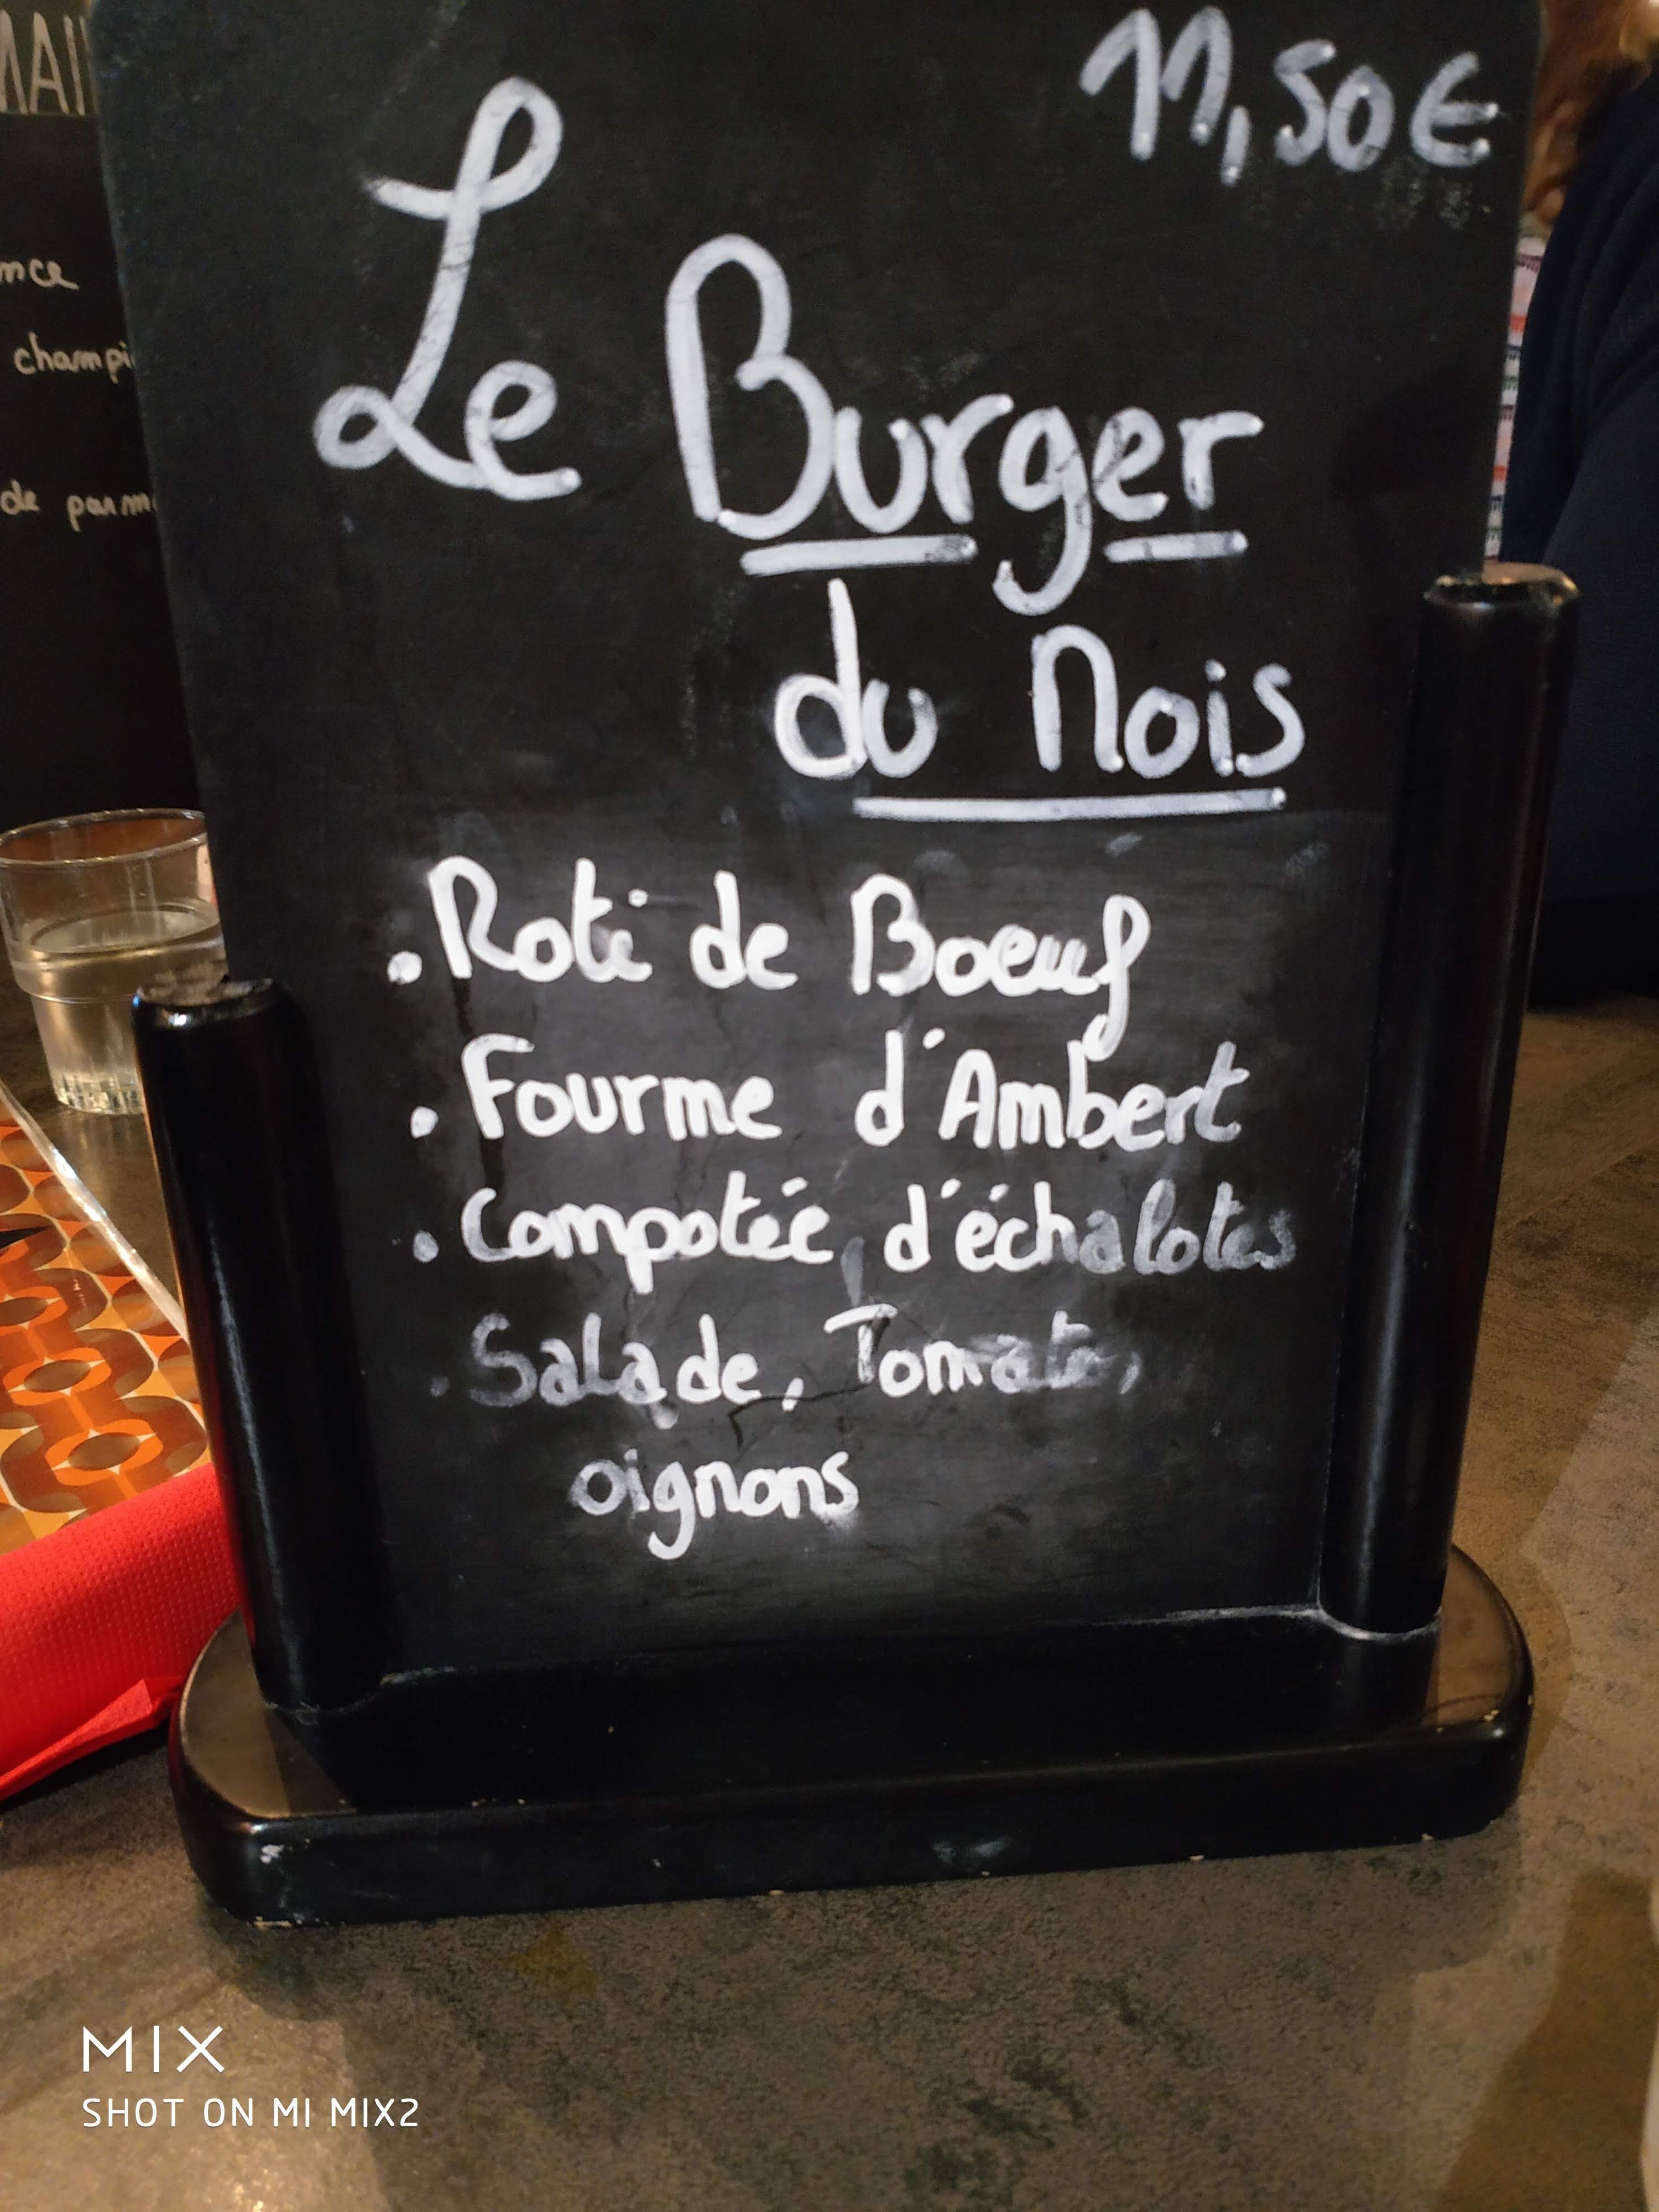 11,50€
Le Burger
du Mois
. Roti de Boeuf
. Fourme d'Ambert
. Compotée d'échalotes
. Salade, Tomate,
oignons
MAI
nce
champi
de parm
MIX
SHOT ON MI MIX2